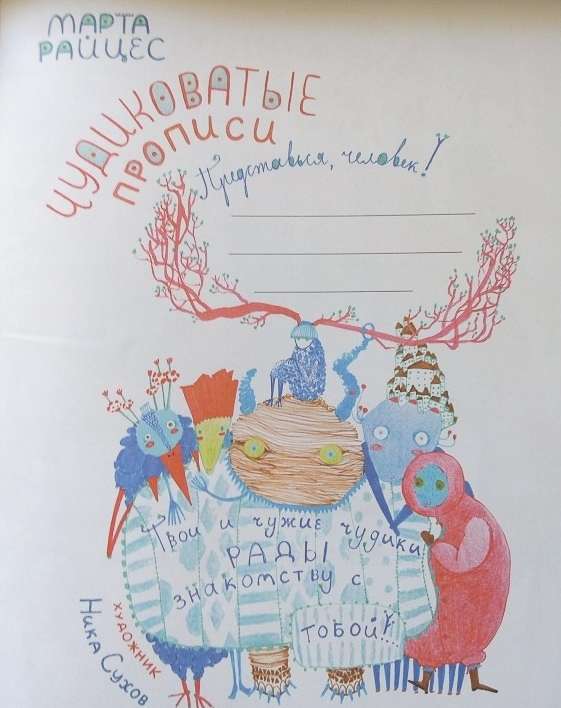 МАРТА
РАЙЦЕС
ЧУДИКОВАТЫЕ
ПРОПИСИ
Представься, человек!
Твои и чужие чудики
РАДЫ
знакомству с
тобой!
художник
Ника Сухов